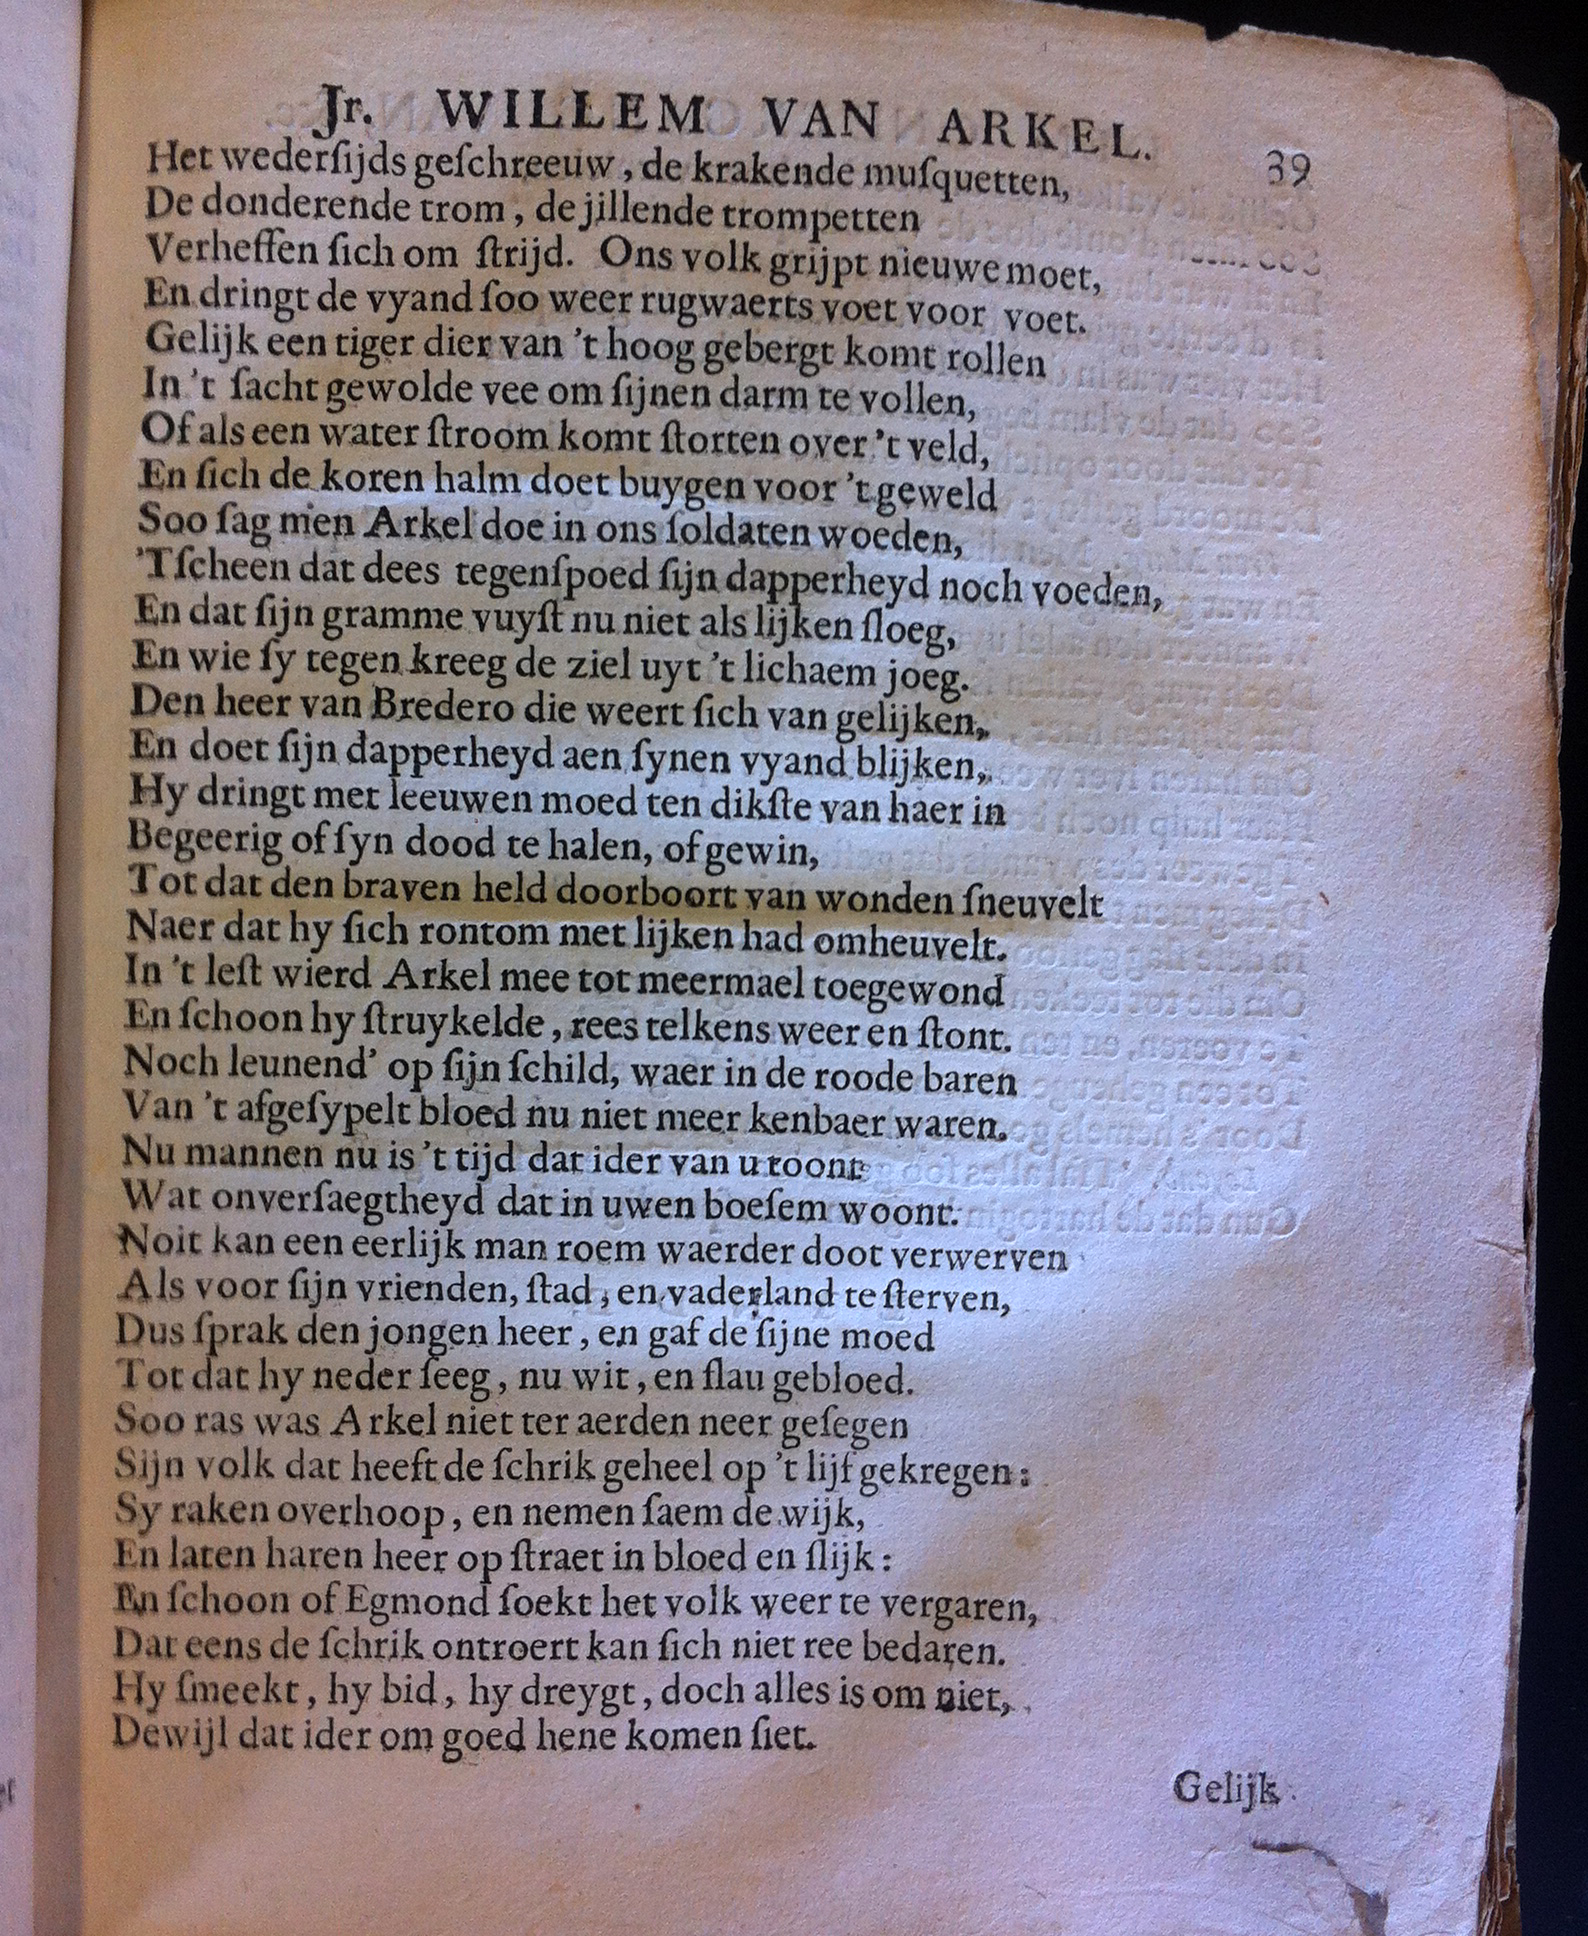 Jr. WILLEM VAN ARKEL. 39
Het wederſijds geſchreeuw, de krakende muſquetten,
De donderende trom, de jillende trompetten
Verheffen ſich om ſtrijd. Ons volk grijpt nieuwe moet,
En dringt de vyand ſoo weer rugwaerts voet voor voet.
Gelijk een tiger dier van 't hoog gebergt komt rollen
In 't ſacht gewolde vee om ſijnen darm te vollen,
Of als een water ſtroom komt ſtorten over 't veld,
En ſich de koren halm doet buygen voor 't geweld
Soo ſag men Arkel doe in ons ſoldaten woeden,
'Tſcheen dat dees tegenſpoed ſijn dapperheyd noch voeden,
En dat ſijn gramme vuyſt nu niet als lijken ſloeg,
En wie ſy tegen kreeg de ziel uyt 't lichaem joeg.
Den heer van Bredero die weert ſich van gelijken,
En doet ſijn dapperheyd aen ſynen vyand blijken,
Hy dringt met leeuwen moed ten dikſte van haer in
Begeerig of ſyn dood te halen, of gewin,
Tot dat den braven held doorboort van wonden ſneuvelt
Naer dat hy ſich rontom met lijken had omheuvelt.
In 't leſt wierd Arkel mee tot meermael toegewond
En ſchoon hy ſtruykelde, rees telkens weer en ſtont.
Noch leunend' op ſijn ſchild, waer in de roode baren
Van 't afgeſypelt bloed nu niet meer kenbaer waren.
Nu mannen nu is 't tijd dat ider van u toont
Wat onverſaegtheyd dat in uwen boeſem woont.
Noit kan een eerlijk man roem waerder doot verwerven
Als voor ſijn vrienden, ſtad, en vaderland te ſterven,
Dus ſprak den jongen heer, en gaf de ſijne moed
Tot dat hy neder ſeeg, nu wit, en flau gebloed.
Soo ras was Arkel niet ter aerden neer geſegen
Sijn volk dat heeft de ſchrik geheel op 't lijf gekregen:
Sy raken overhoop, en nemen ſaem de wijk,
En laten haren heer op ſtraet in bloed en ſlijk:
En ſchoon of Egmond ſoekt het volk weer te vergaren,
Dat eens de ſchrik ontroert kan ſich niet ree bedaren.
Hy ſmeekt, hy bid, hy dreygt, doch alles is om niet,
Dewijl dat ider om goed hene komen ſiet.
Gelijk